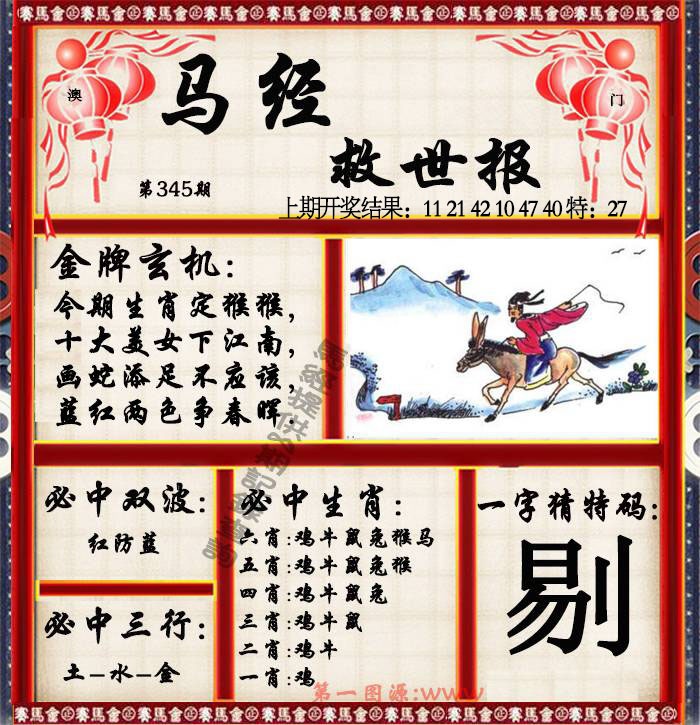 賽馬會 賽馬會 賽馬會 賽馬會 賽馬會 賽馬會 賽馬會
澳
门
马经
救世报
第345期
上期开奖结果：11 21 42 10 47 40 特：27
金牌玄机：
今期生肖定猴猴，
十大美女下江南，
画蛇添足不应该，
蓝红两色争春晖.
必中双波：
红防蓝
必中三行：
土-水-金
必中生肖：
六肖:鸡牛鼠兔猴马
五肖:鸡牛鼠兔猴
四肖:鸡牛鼠兔
三肖:鸡牛鼠
二肖:鸡牛
一肖:鸡
一字猜特码：
剔
第一图源:www